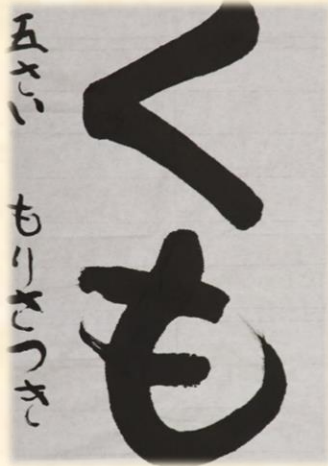 くも
五さい　もりさつき